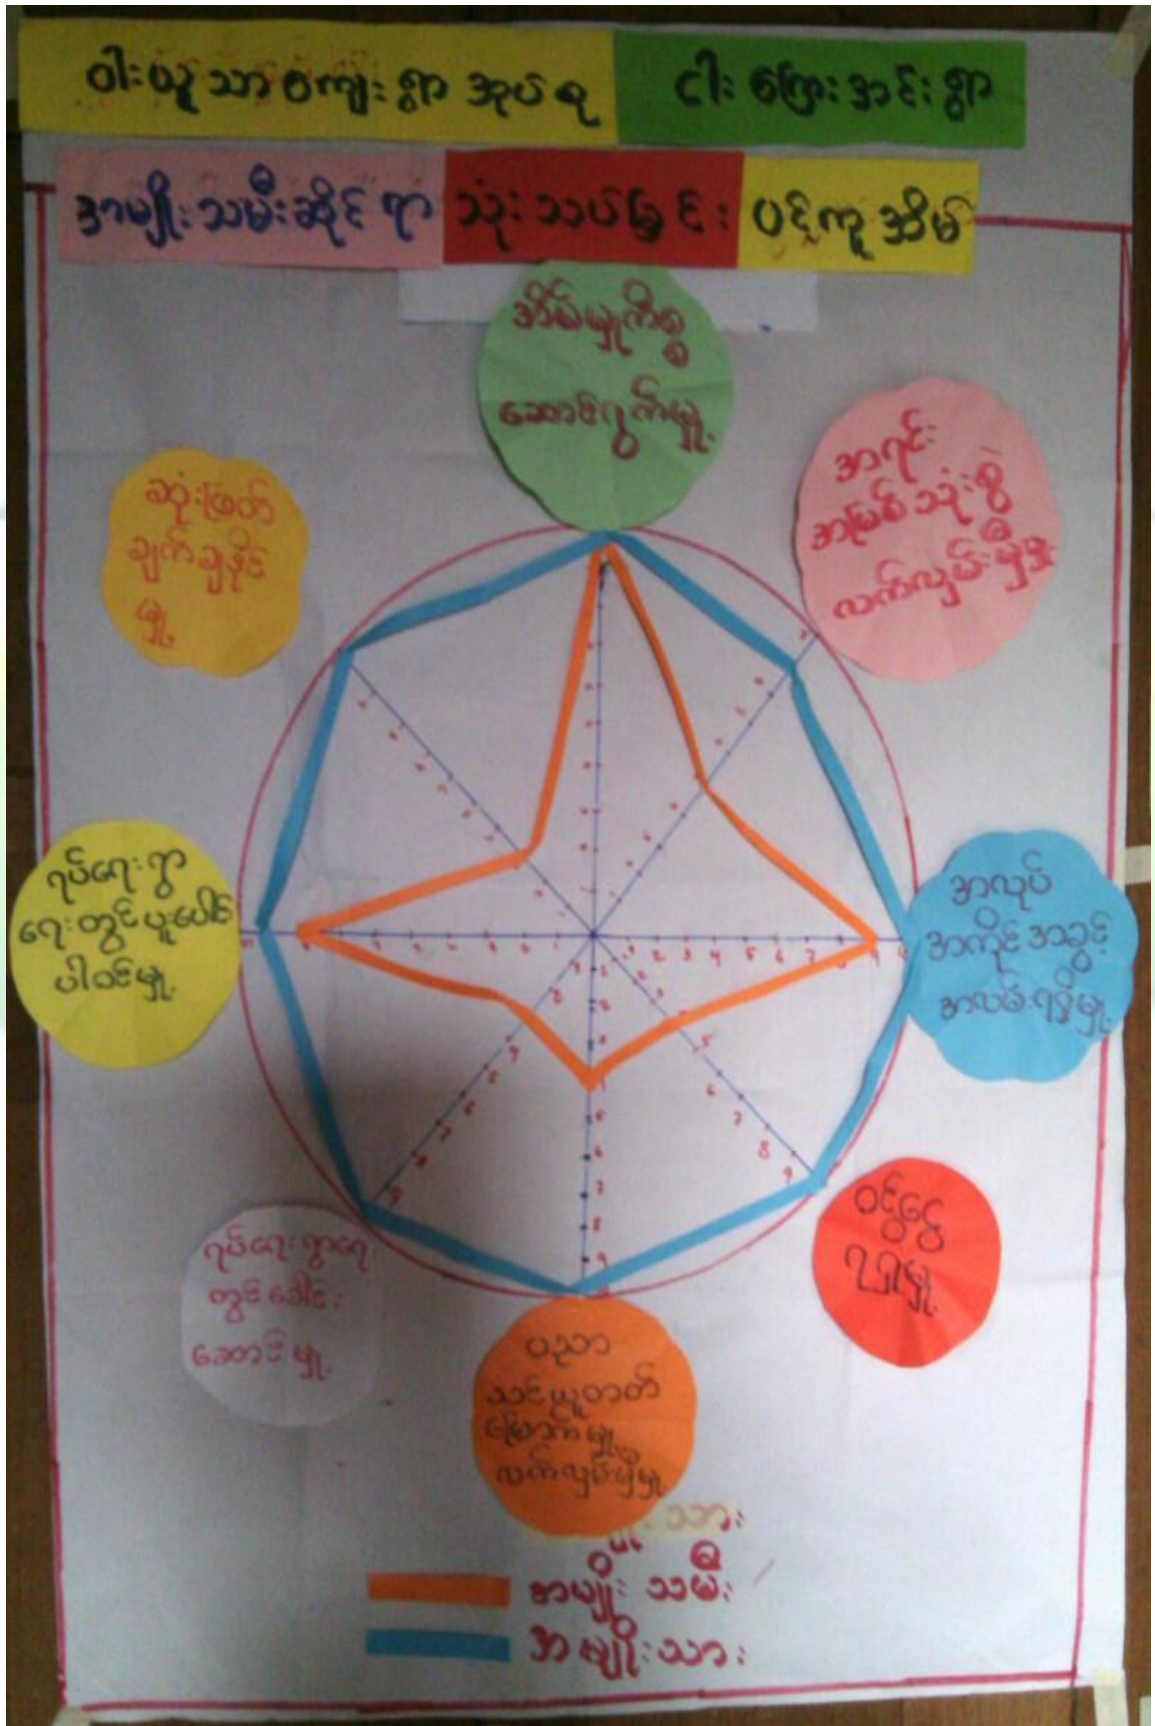 ဝါးယူသာကျေးရွာအုပ်စု ငါးကြေးအင်းရွာ
အမျိုးသမီးဆိုင်ရာ သုံးသပ်ခြင်း ပင့်ကူအိမ်
အိမ်မှုကိစ္စ
ဆောင်ရွက်မှု့
အရင်း
အမြစ်သုံးစွဲ
လက်လှမ်းမှီမှု့
အလုပ်
အကိုင်အခွင့်
အလမ်းရရှိမှု့
ဝင်ငွေ
ရရှိမှု့
ပညာ
သင်ယူတတ်
မြောက်မှု့
လက်လှမ်းမှီမှု့
ရပ်ရေးရွာရေး
တွင်ခေါင်း
ဆောင်မှု့
ရပ်ရေးရွာ
ရေးတွင်ပူးပေါင်း
ပါဝင်မှု့
ဆုံးဖြတ်
ချက်ချနိုင်
မှု့
အမျိုးသမီး
အမျိုးသား